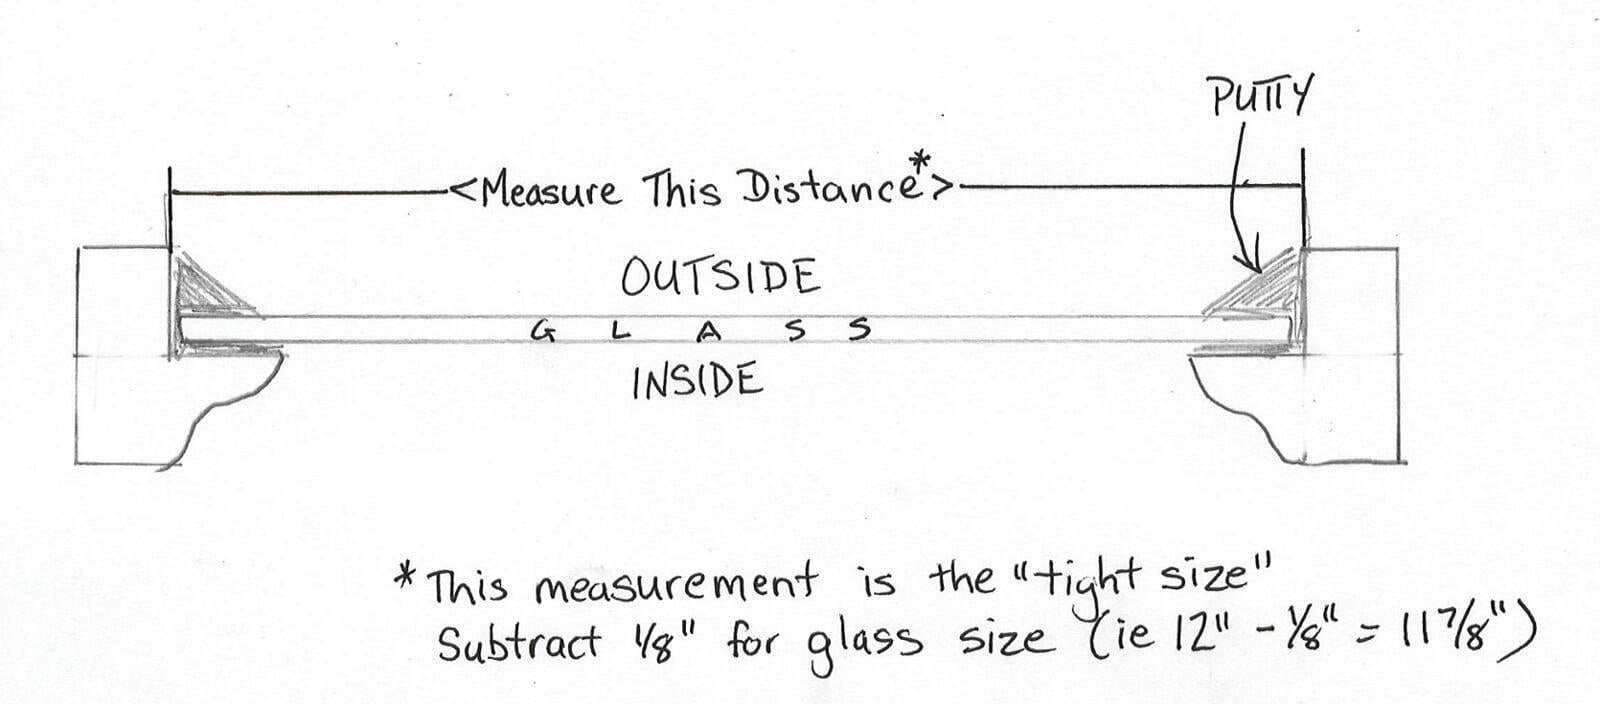 PUTTY
<Measure This Distance*>
OUTSIDE
GLASS
INSIDE
*This measurement is the "tight size"
Subtract 1/8" for glass size (ie 12" - 1/8" = 11 7/8")